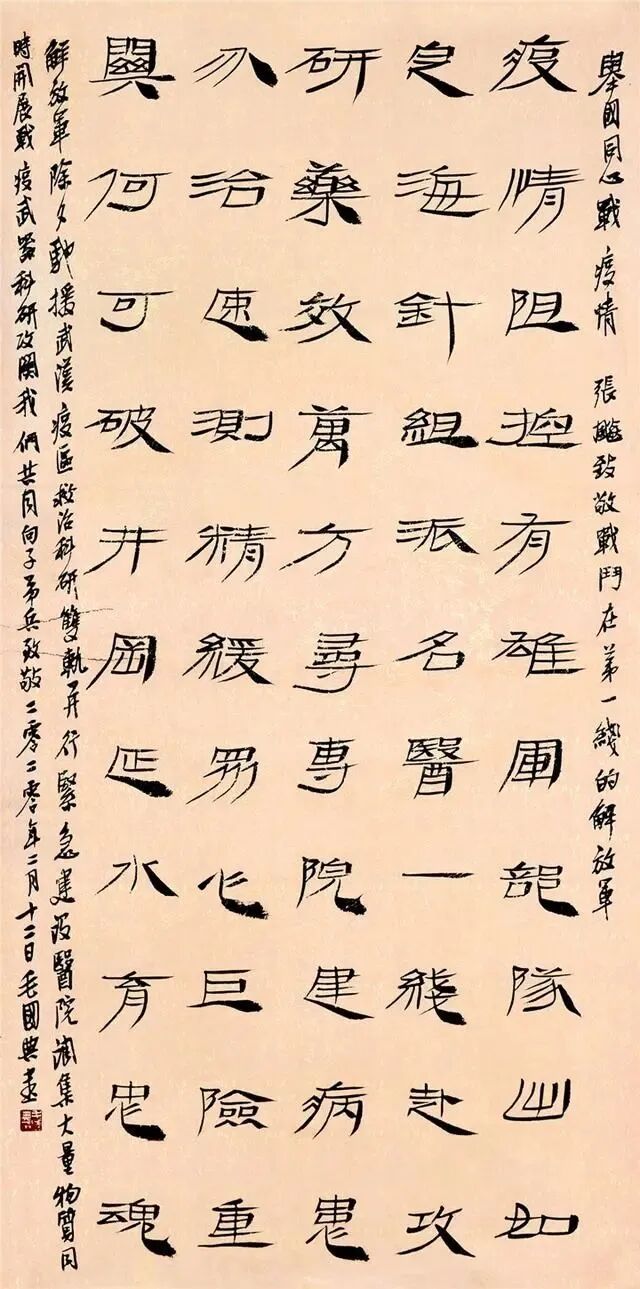 舉國同心戰疫情 張飈致敬戰鬥在第一綫的解放軍
疫情阻控有雄軍部隊出如
定海針組派名醫一綫赴攻
研藥效萬方尋專院建病患
分治速測精緩眾心巨險重
興何可破井岡延水育忠魂
解放軍除夕馳援武漢疫區救治科研雙軌并行緊急建設醫院調集大量物質同
時開展戰疫武器科研攻關我們共同向子弟兵致敬二零二零年二月十二日毛國典書